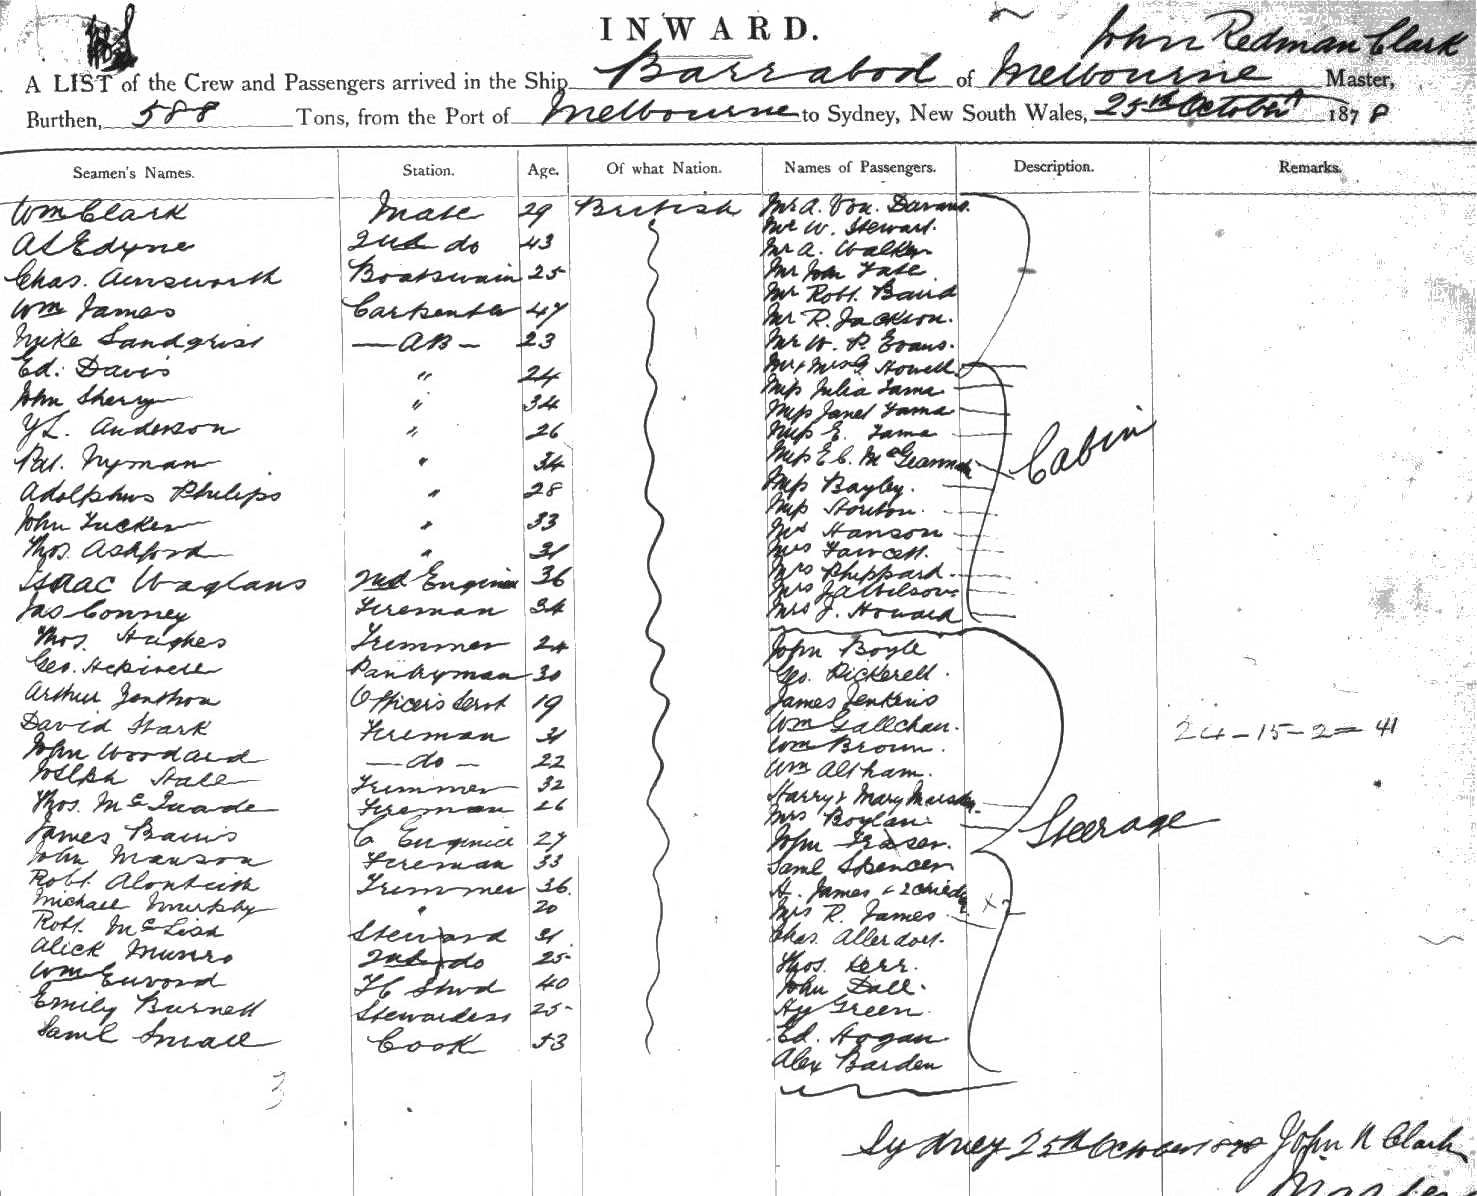 INWARD.
John Redman Clark
A LIST of the Crew and Passengers arrived in the Ship Barrabool of Melbourne Master,
Burthen, 588 Tons, from the Port of Melbourne to Sydney, New South Wales, 25th October 1878
Seamen's Names. Station. Age. Of what Nation. Names of Passengers. Description. Remarks.
Wm Clark Mate 29 British Mr A. Von.
A L Edyne 2nd do 43 Mr W. Stewart.
Chas. Ainsworth Boatswain 25 Mr A. Walker
Wm James Carpenter 47 Mr John Tate
Sandgrist — AB — 23 Mr Robt. Baird
Ed. Davis " 24 Mr R. Jackson.
John Sherry " 34 Mr W. P. Evans.
Y L. Anderson " 26 Mr & Mrs G. Howell
Pat. Nyman " 34 Miss Julia Tama
Adolphus Philips " 28 Miss Janet Tama
John Tucker " 33 Miss E. Tama
Thos. Ashford " 31 Miss E C.
Isaac Waglans 2nd Engineer 36 Miss Bayley.
Jas Conney Fireman 34 Miss
Thos. Hughes Trimmer 24 Hanson
Geo. Pantryman 30 Mrs Fawcett.
Arthur Officers Servt 19 Mrs Pheppard.
David Stark Fireman 31 Mrs J A Wilson
John Woodard — do — 22 Mrs J. Howard
Cabin
Joseph Hall Trimmer 32 John Boyle
Thos. McQuade Fireman 26 Geo. Pickerell.
James Bains C Engineer 27 James Jenkins
John Manson Fireman 33 Wm Gallchan.
Robt. Trimmer 36. Wm Brown.
Michael Murphy " 20 Wm Altham.
Robt. McLish Steward 31 Harry & Mary
Alick Munro 2nd do 25 Mrs Boylan
Wm 40 John Fraser.
Emily Burnett Stewardess 25 Saml Spencer
Saml Small Cook 53 H. James & 2 children
Mrs R. James x2
Chas.
Thos. Kerr.
John Dall.
Hy Green.
Ed. Hogan
Alex Barden
Steerage
24 – 15 – 2 = 41
3
Sydney 25th October 1878 John R Clark
Master